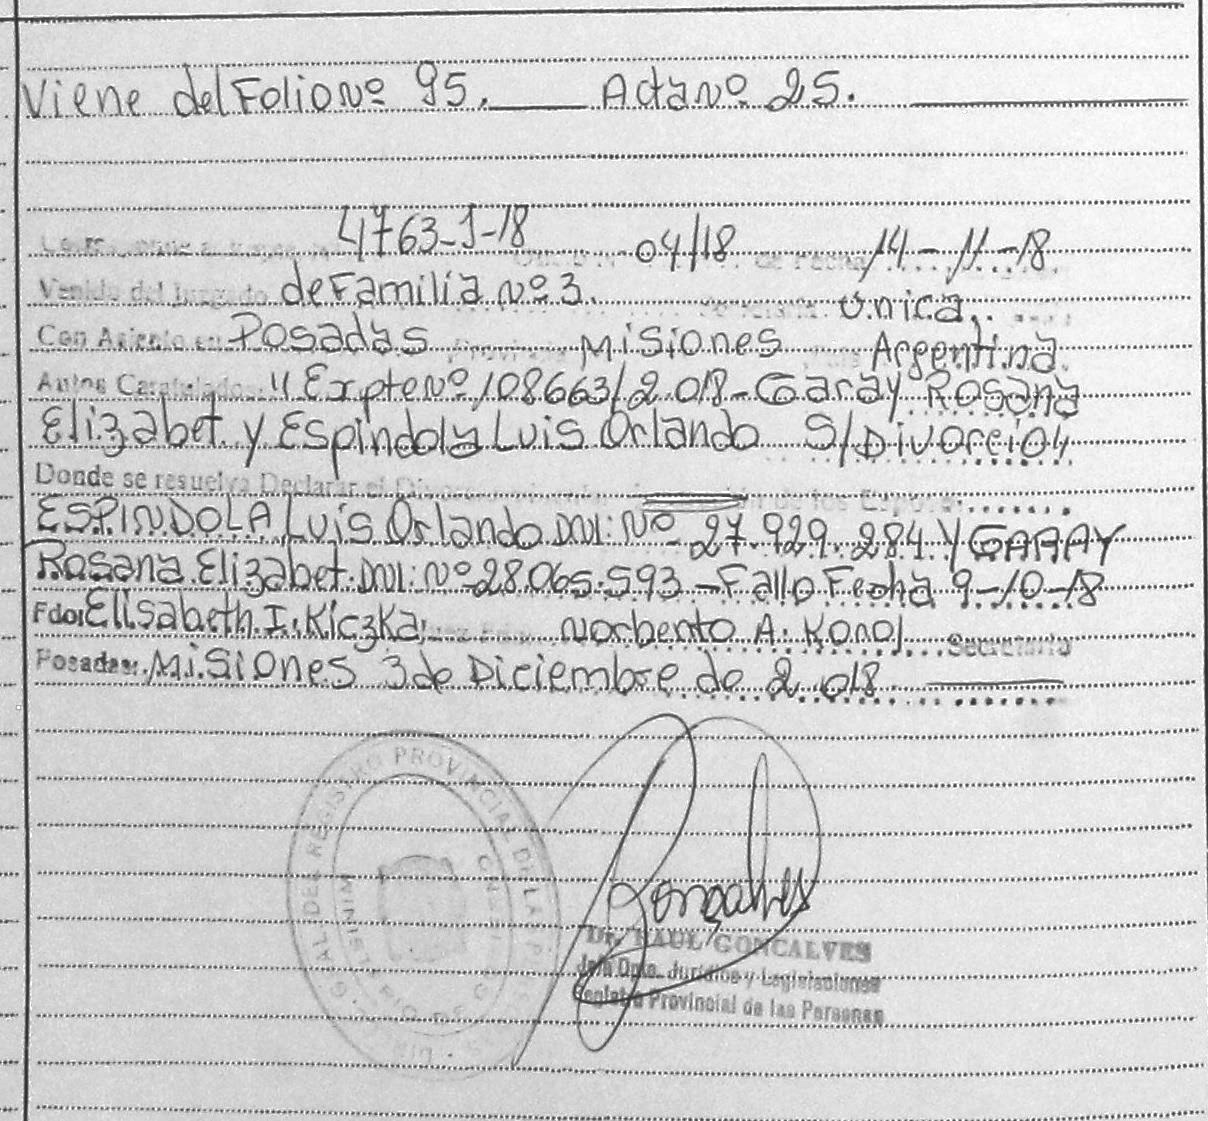 Viene del Folio Nº 95. Acta Nº 25.
4763-J-18 04/18 de Fecha 14-11-18
Venido del Juzgado de Familia Nº 3. Secretaria Única.
Con Asiento en Posadas Misiones Argentina.
Autos Caratulados: "Expte Nº 108663/2.018-Garay Rosana
Elizabet y Espindola Luis Orlando S/Divorcio"
Donde se resuelva Declarar el Divorcio de los Esposos:
ESPINDOLA Luis Orlando DNI: Nº 27.929.284 Y GARAY
Rosana Elizabet DNI: Nº 28.065.593 - Fallo Fecha 9-10-18
Fdo: Elisabeth I. Kiczka Norberto A. Korol Secretario
Posadas: Misiones 3 de Diciembre de 2.018
REGISTRO PROVINCIAL DE LAS
MINISTERIO DE GOBIERNO
Goncalves
Dr. RAUL GONCALVES
Jefe Dpto. Jurídico y Legislaciones
Registro Provincial de las Personas